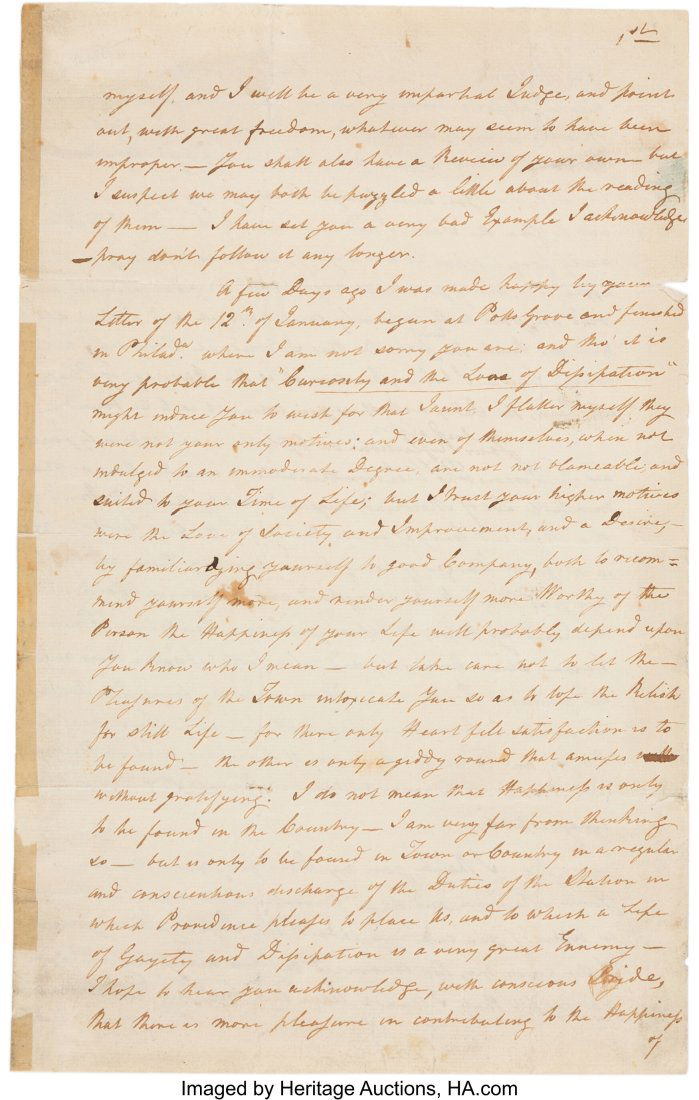 1st
myself, and I will be a very impartial Judge, and point
out, with great freedom, whatever may seem to have been
improper. — You shall also have a Review of your own — but
I suspect we may both be puzzled a little about the reading
of them — I have set you a very bad Example I acknowledge
— pray don't follow it any longer.
A few Days ago I was made happy by your
Letter of the 12th of January, begun at Potts Grove and finished
in Philada. where I am not sorry you are; and tho' it is
very probable that "Curiosity and the Love of Dissipation"
might induce you to wish for that Jaunt, I flatter myself they
were not your only motives: and even of themselves, when not
indulged to an immoderate Degree, are not not blameable, and
suited to your Time of Life; but I trust your higher motives
were the Love of Society and Improvement, and a Desire, —
by familiarizing yourself to good Company, both to recom=
mend yourself more, and render yourself more Worthy of the
Person the Happiness of your Life will probably depend upon
You know who I mean — but take care not to let the —
Pleasures of the Town intoxicate you so as to lose the Relish
for still Life — for there only Heart felt satisfaction is to
be found — the other is only a giddy round that amuses
without gratifying. I do not mean that Happiness is only
to be found in the Country — I am very far from thinking
so — but is only to be found in Town or Country in a regular
and conscientious discharge of the Duties of the Station in
which Providence pleases to place Us, and to which a Life
of Gayety and Dissipation is a very great Ennemy —
I hope to hear you acknowledge, with conscious Pride,
that there is more pleasure in contributing to the Happiness
of
Imaged by Heritage Auctions, HA.com